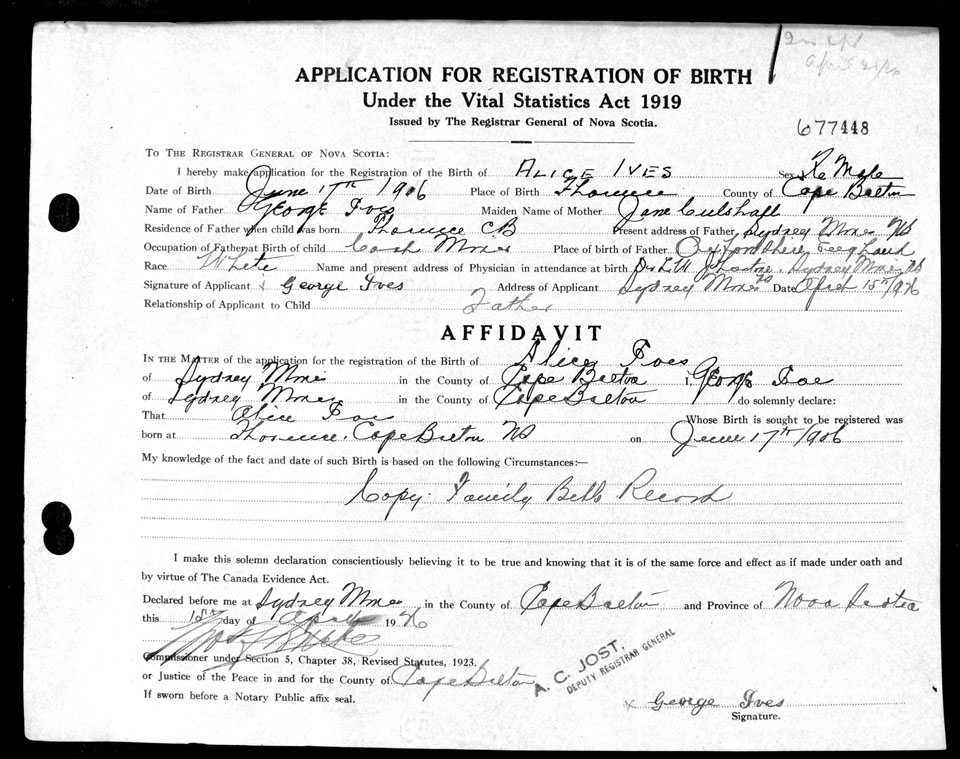 APPLICATION FOR REGISTRATION OF BIRTH
Under the Vital Statistics Act 1919
Issued by The Registrar General of Nova Scotia.
677448
TO THE REGISTRAR GENERAL OF NOVA SCOTIA:
I hereby make application for the Registration of the Birth of ALICE IVES Sex Fe Male
Date of Birth June 17th 1906 Place of Birth Florence County of Cape Breton
Name of Father George Ives Maiden Name of Mother Jane Culshall
Residence of Father when child was born Florence CB Present address of Father, Sydney Mines NS
Occupation of Father at Birth of child Coal Miner Place of birth of Father Oxfordshire England
Race White Name and present address of Physician in attendance at birth Dr L.W. Johnstone, Sydney Mines NS
Signature of Applicant x George Ives Address of Applicant Sydney Mines NS Date April 15th 1926
Relationship of Applicant to Child Father
AFFIDAVIT
IN THE MATTER of the application for the registration of the Birth of Alice Ives
of Sydney Mines in the County of Cape Breton I, George Ives
of Sydney Mines in the County of Cape Breton do solemnly declare:
That Alice Ives Whose Birth is sought to be registered was
born at Florence, Cape Breton NS on June 17th 1906
My knowledge of the fact and date of such Birth is based on the following Circumstances:—
Copy Family Record
I make this solemn declaration conscientiously believing it to be true and knowing that it is of the same force and effect as if made under oath and
by virtue of The Canada Evidence Act.
Declared before me at Sydney Mines in the County of Cape Breton and Province of Nova Scotia
this 15th day of April 1926
Commissioner under Section 5, Chapter 38, Revised Statutes, 1923.
or Justice of the Peace in and for the County of Cape Breton
A. C. JOST,
DEPUTY REGISTRAR GENERAL
If sworn before a Notary Public affix seal.
x George Ives
Signature.